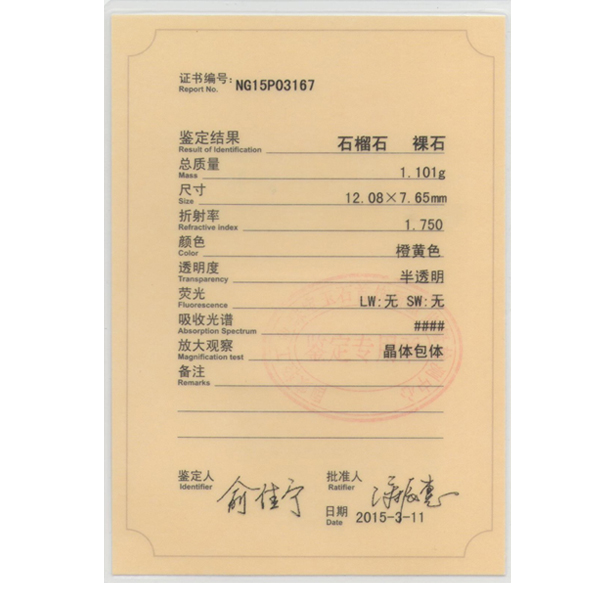 证书编号: NG15P03167
Report No.
鉴定结果 石榴石 裸石
Result of Identification
总质量 1.101g
Mass
尺寸 12.08×7.65mm
Size
折射率 1.750
Refractive index
颜色 橙黄色
Color
透明度 半透明
Transparency
荧光 LW:无 SW:无
Fluorescence
吸收光谱 ####
Absorption Spectrum
放大观察 晶体包体
Magnification test
备注
Remarks
鉴定人 俞佳宁 批准人
Identifier Ratifier
日期 2015-3-11
Date